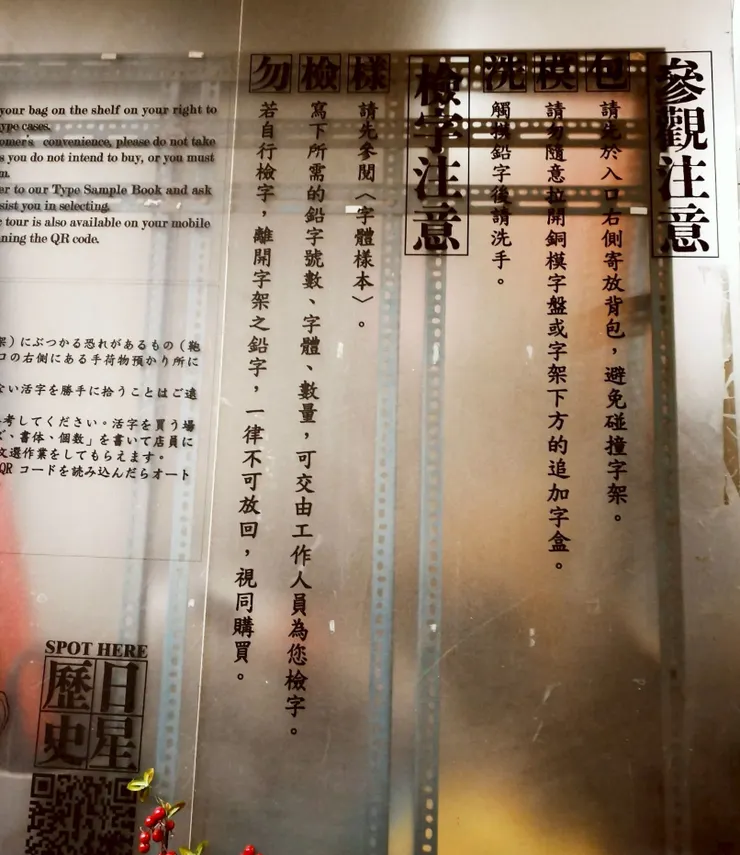 參觀注意
包
請先於入口右側寄放背包，避免碰撞字架。
模
請勿隨意拉開銅模字盤或字架下方的追加字盒。
洗
觸摸鉛字後請洗手。
檢字注意
樣
請先參閱〈字體樣本〉。
檢
寫下所需的鉛字號數、字體、數量，可交由工作人員為您檢字。
勿
若自行檢字，離開字架之鉛字，一律不可放回，視同購買。
your bag on the shelf on your right to
ype cases.
omer's convenience, please do not take
s you do not intend to buy, or you must
m.
er to our Type Sample Book and ask
sist you in selecting.
tour is also available on your mobile
ning the QR code.
架）にぶつかる恐れがあるもの（鞄
口の右側にある手荷物預かり所に
ない活字を勝手に拾うことはご遠
考してください。活字を買う場
ズ、書体、個数」を書いて店員に
文選作業をしてもらえます。
QR コードを読み込んだらオート
SPOT HERE
日星
歷史